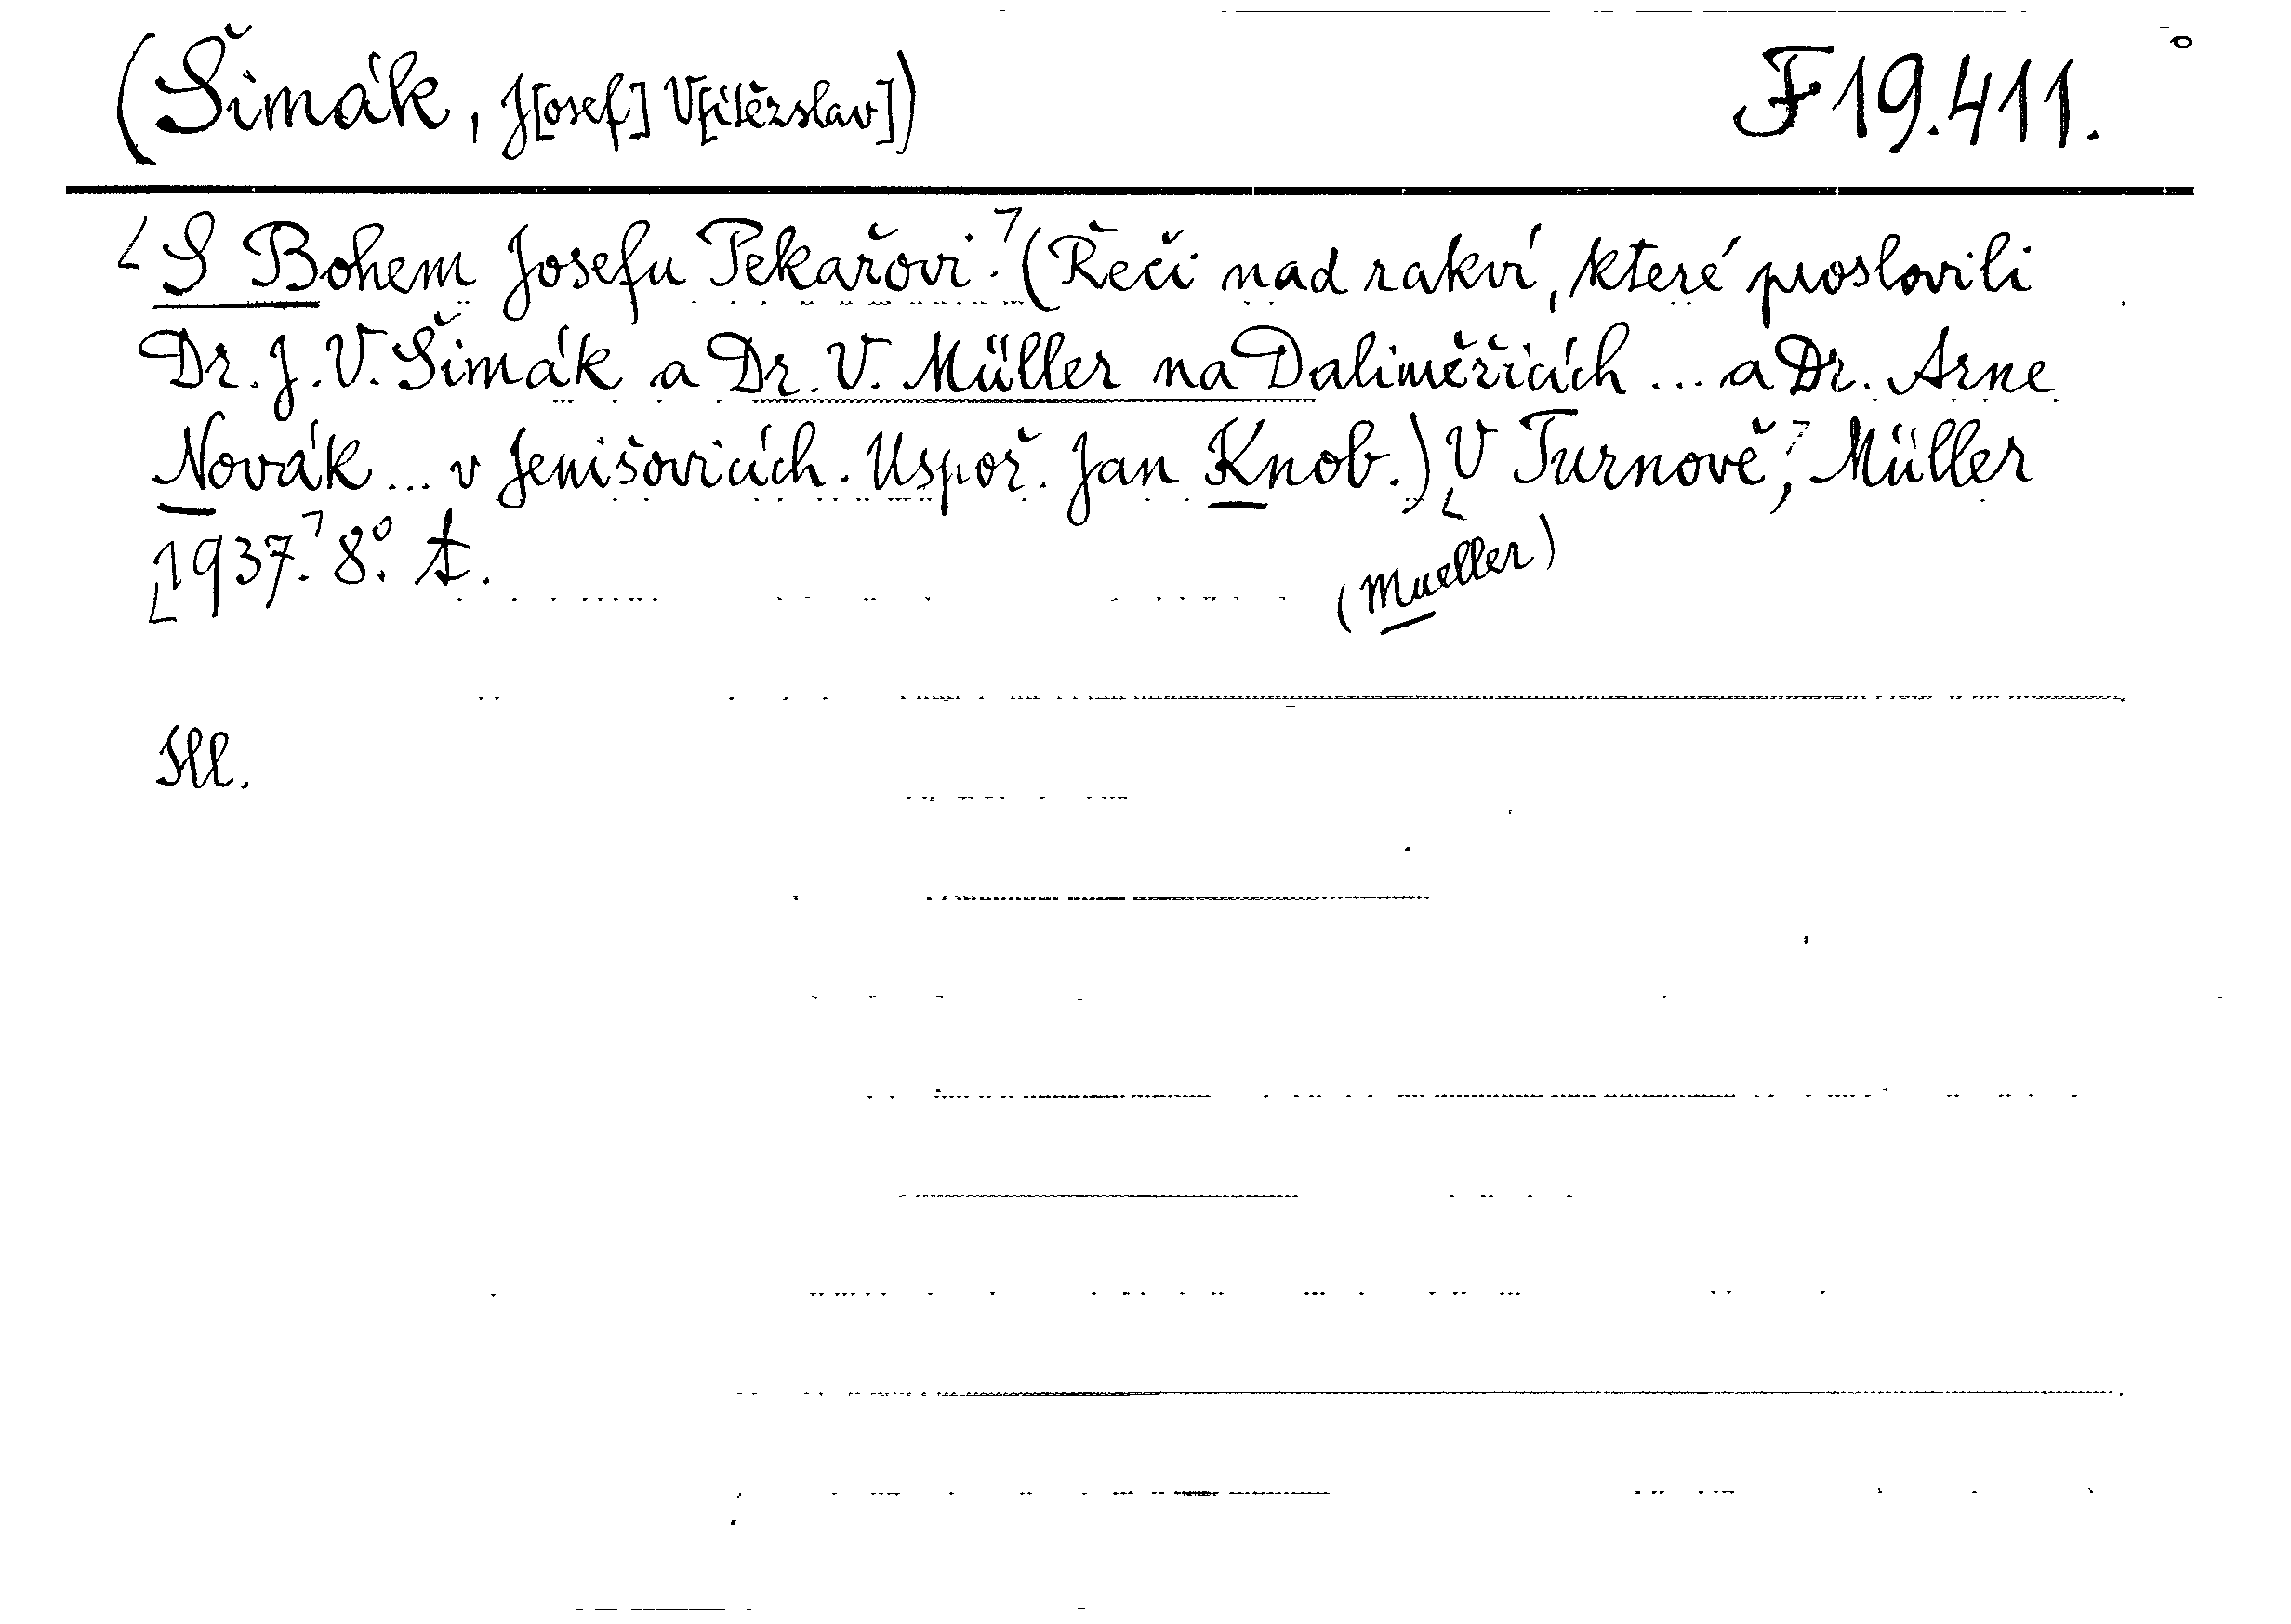 (Šimák, J[osef] V[ítězslav]) F 19.411.
S Bohem Josefu Pekařovi. (Řeči nad rakví, které proslovili
Dr. J. V. Šimák a Dr. V. Müller na Daliměřicích ... a Dr. Arne
Novák ... v Jenišovicích. Uspoř. Jan Knob.) V Turnově, Müller
1937. 8°. A.
(Mueller)
Hl.